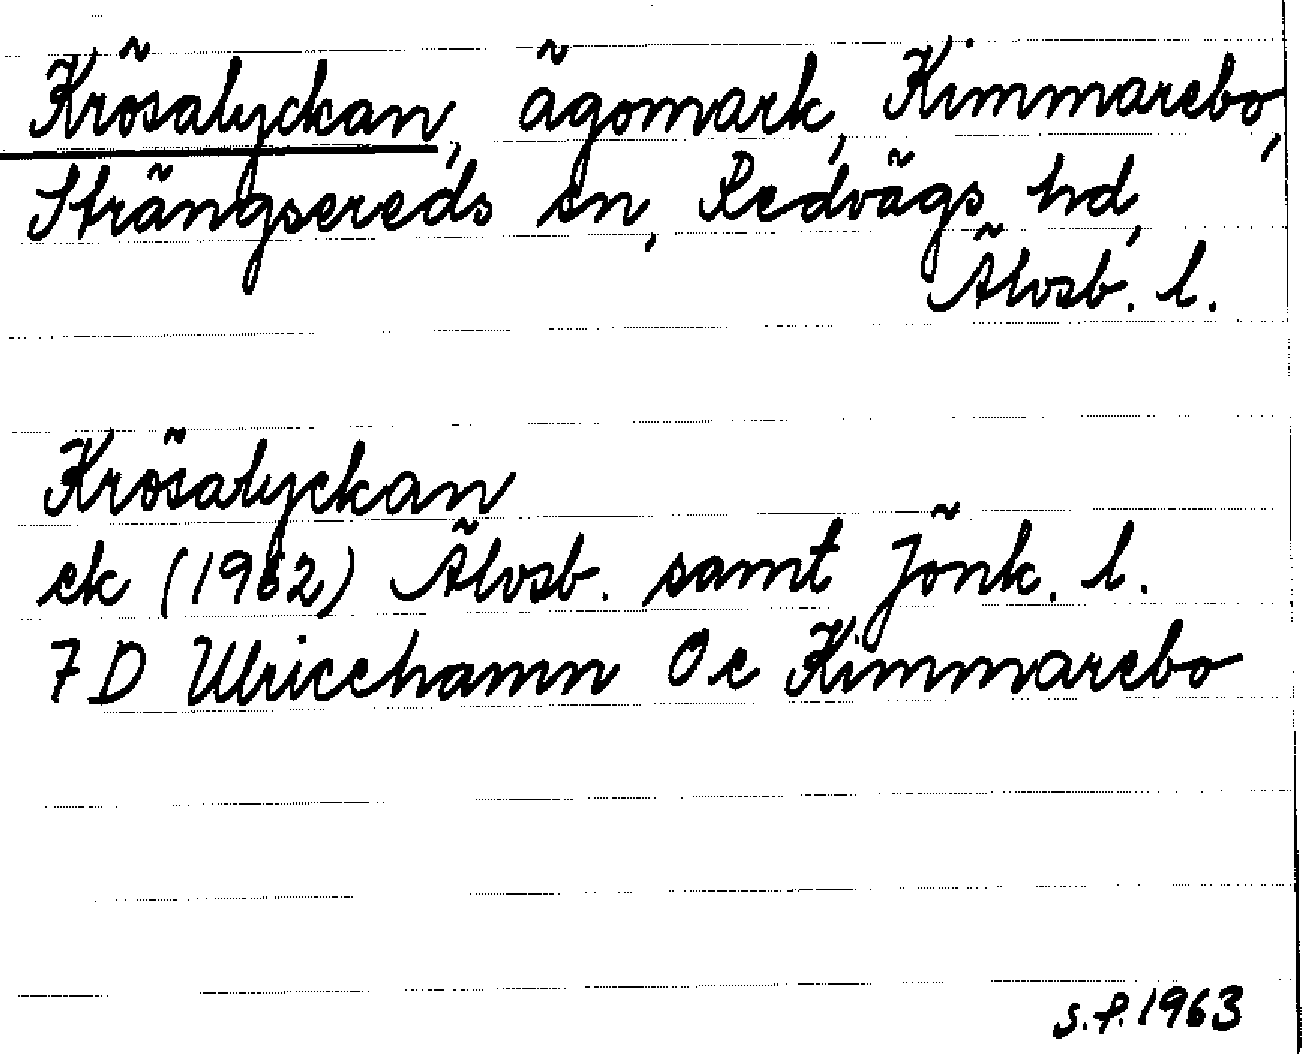 Krösalyckan, ägomark, Kimmarebo,
Strängsereds sn, Redvägs hd,
Älvsb. l.
Krösalyckan
ek (1962) Älvsb. samt Jönk. l.
7 D Ulricehamn 0 e Kimmarebo
s.f. 1963